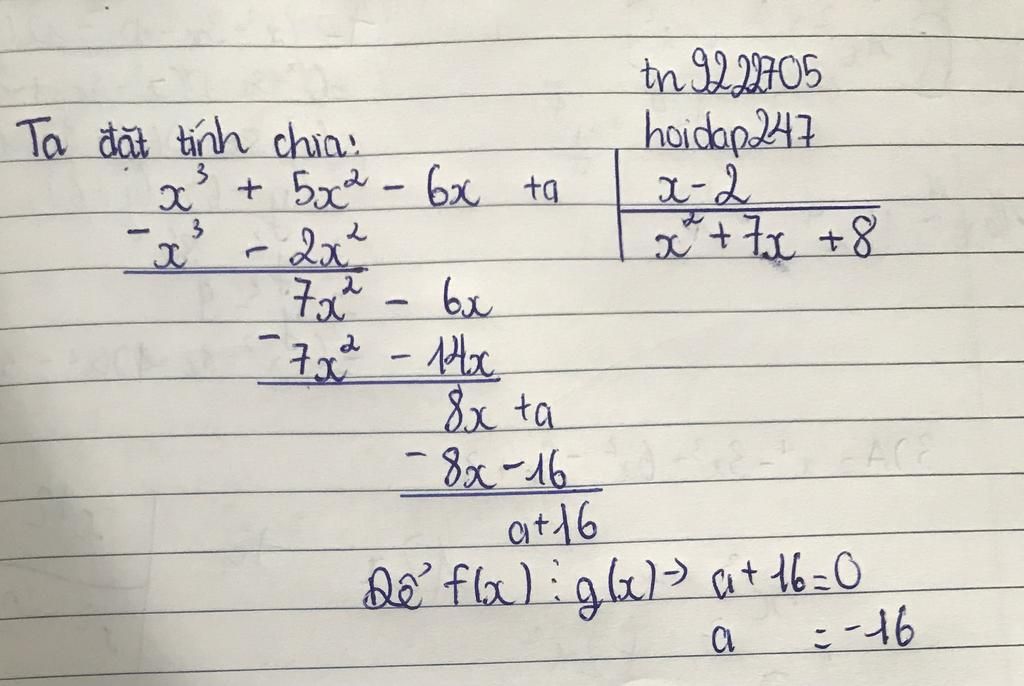 tn9222705
hoidap247
Ta đặt tính chia:
x³ + 5x² - 6x + a | x - 2
- x³ - 2x² | x² + 7x + 8
7x² - 6x
- 7x² - 14x
8x + a
- 8x - 16
a + 16
Để f(x) ⋮ g(x) → a + 16 = 0
a = -16